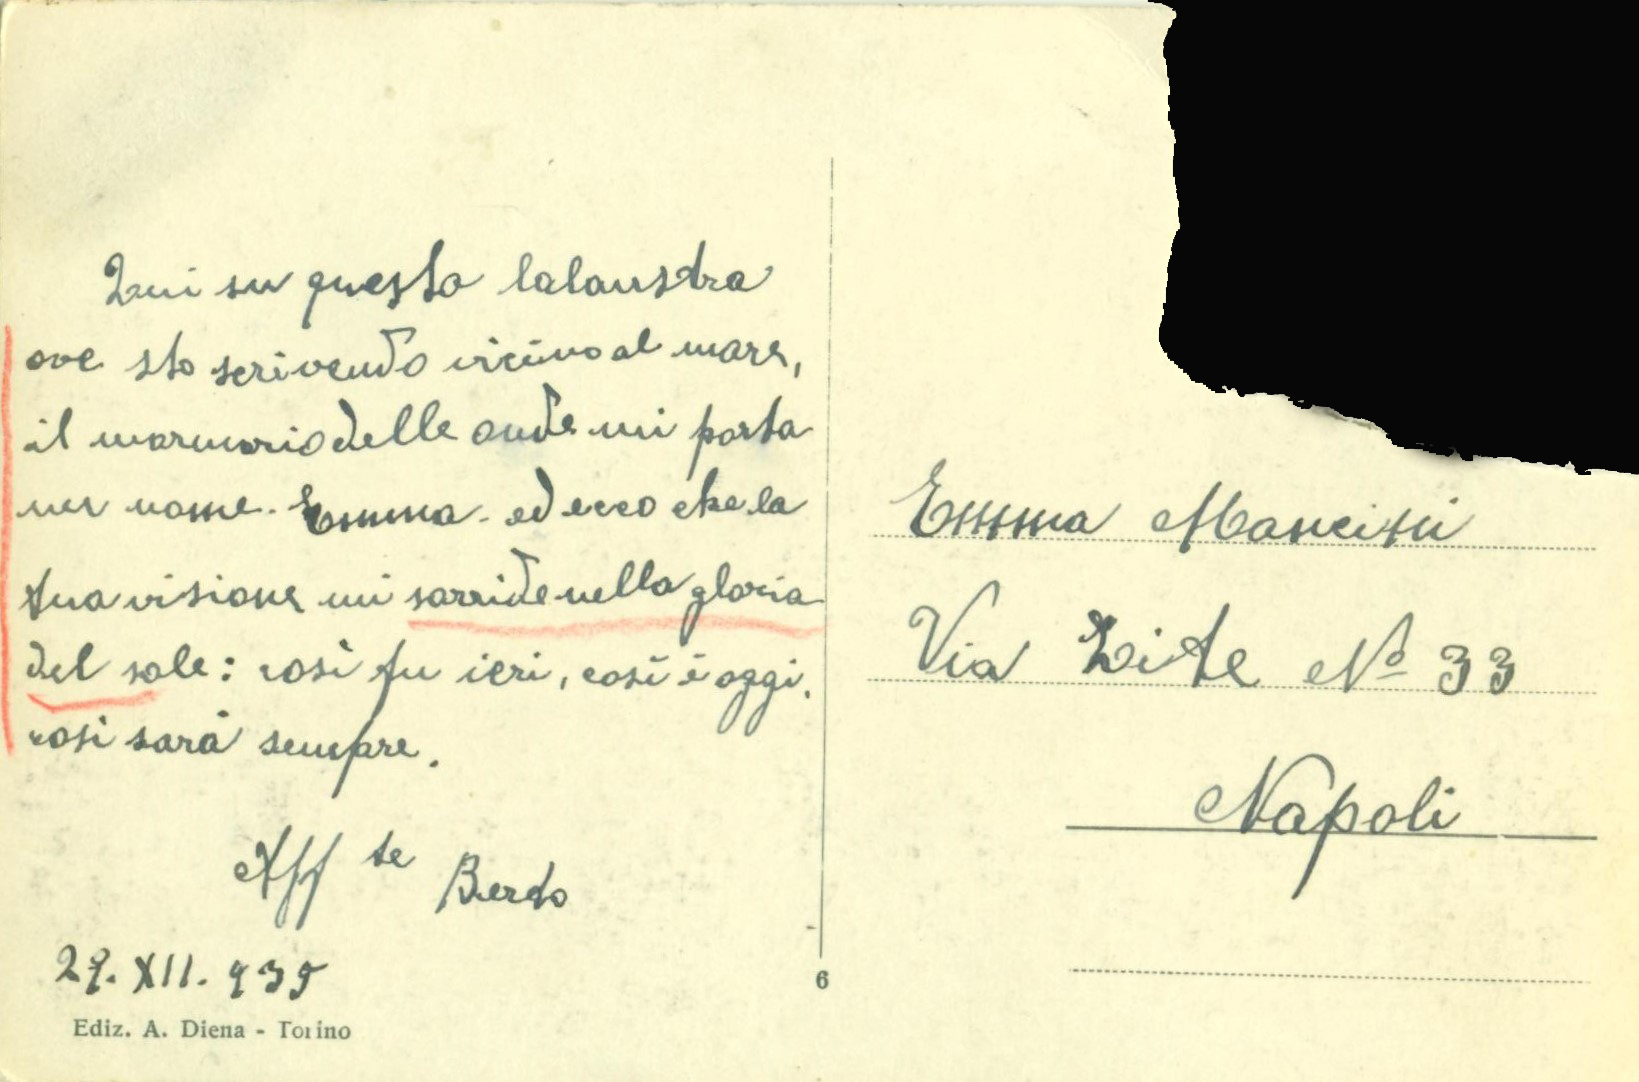 Qui su questa lalaustra
ove sto scrivendo vicino al mare,
il mormorio delle onde mi porta
un nome. Emma. ed ecco che la
tua visione mi sorride nella gloria
del sole: così fu ieri, così è oggi,
così sarà sempre.
Aff te Berto
29. XII. 939
Ediz. A. Diena - Torino
6
Emma Mancini
Via Zite Nº 33
Napoli